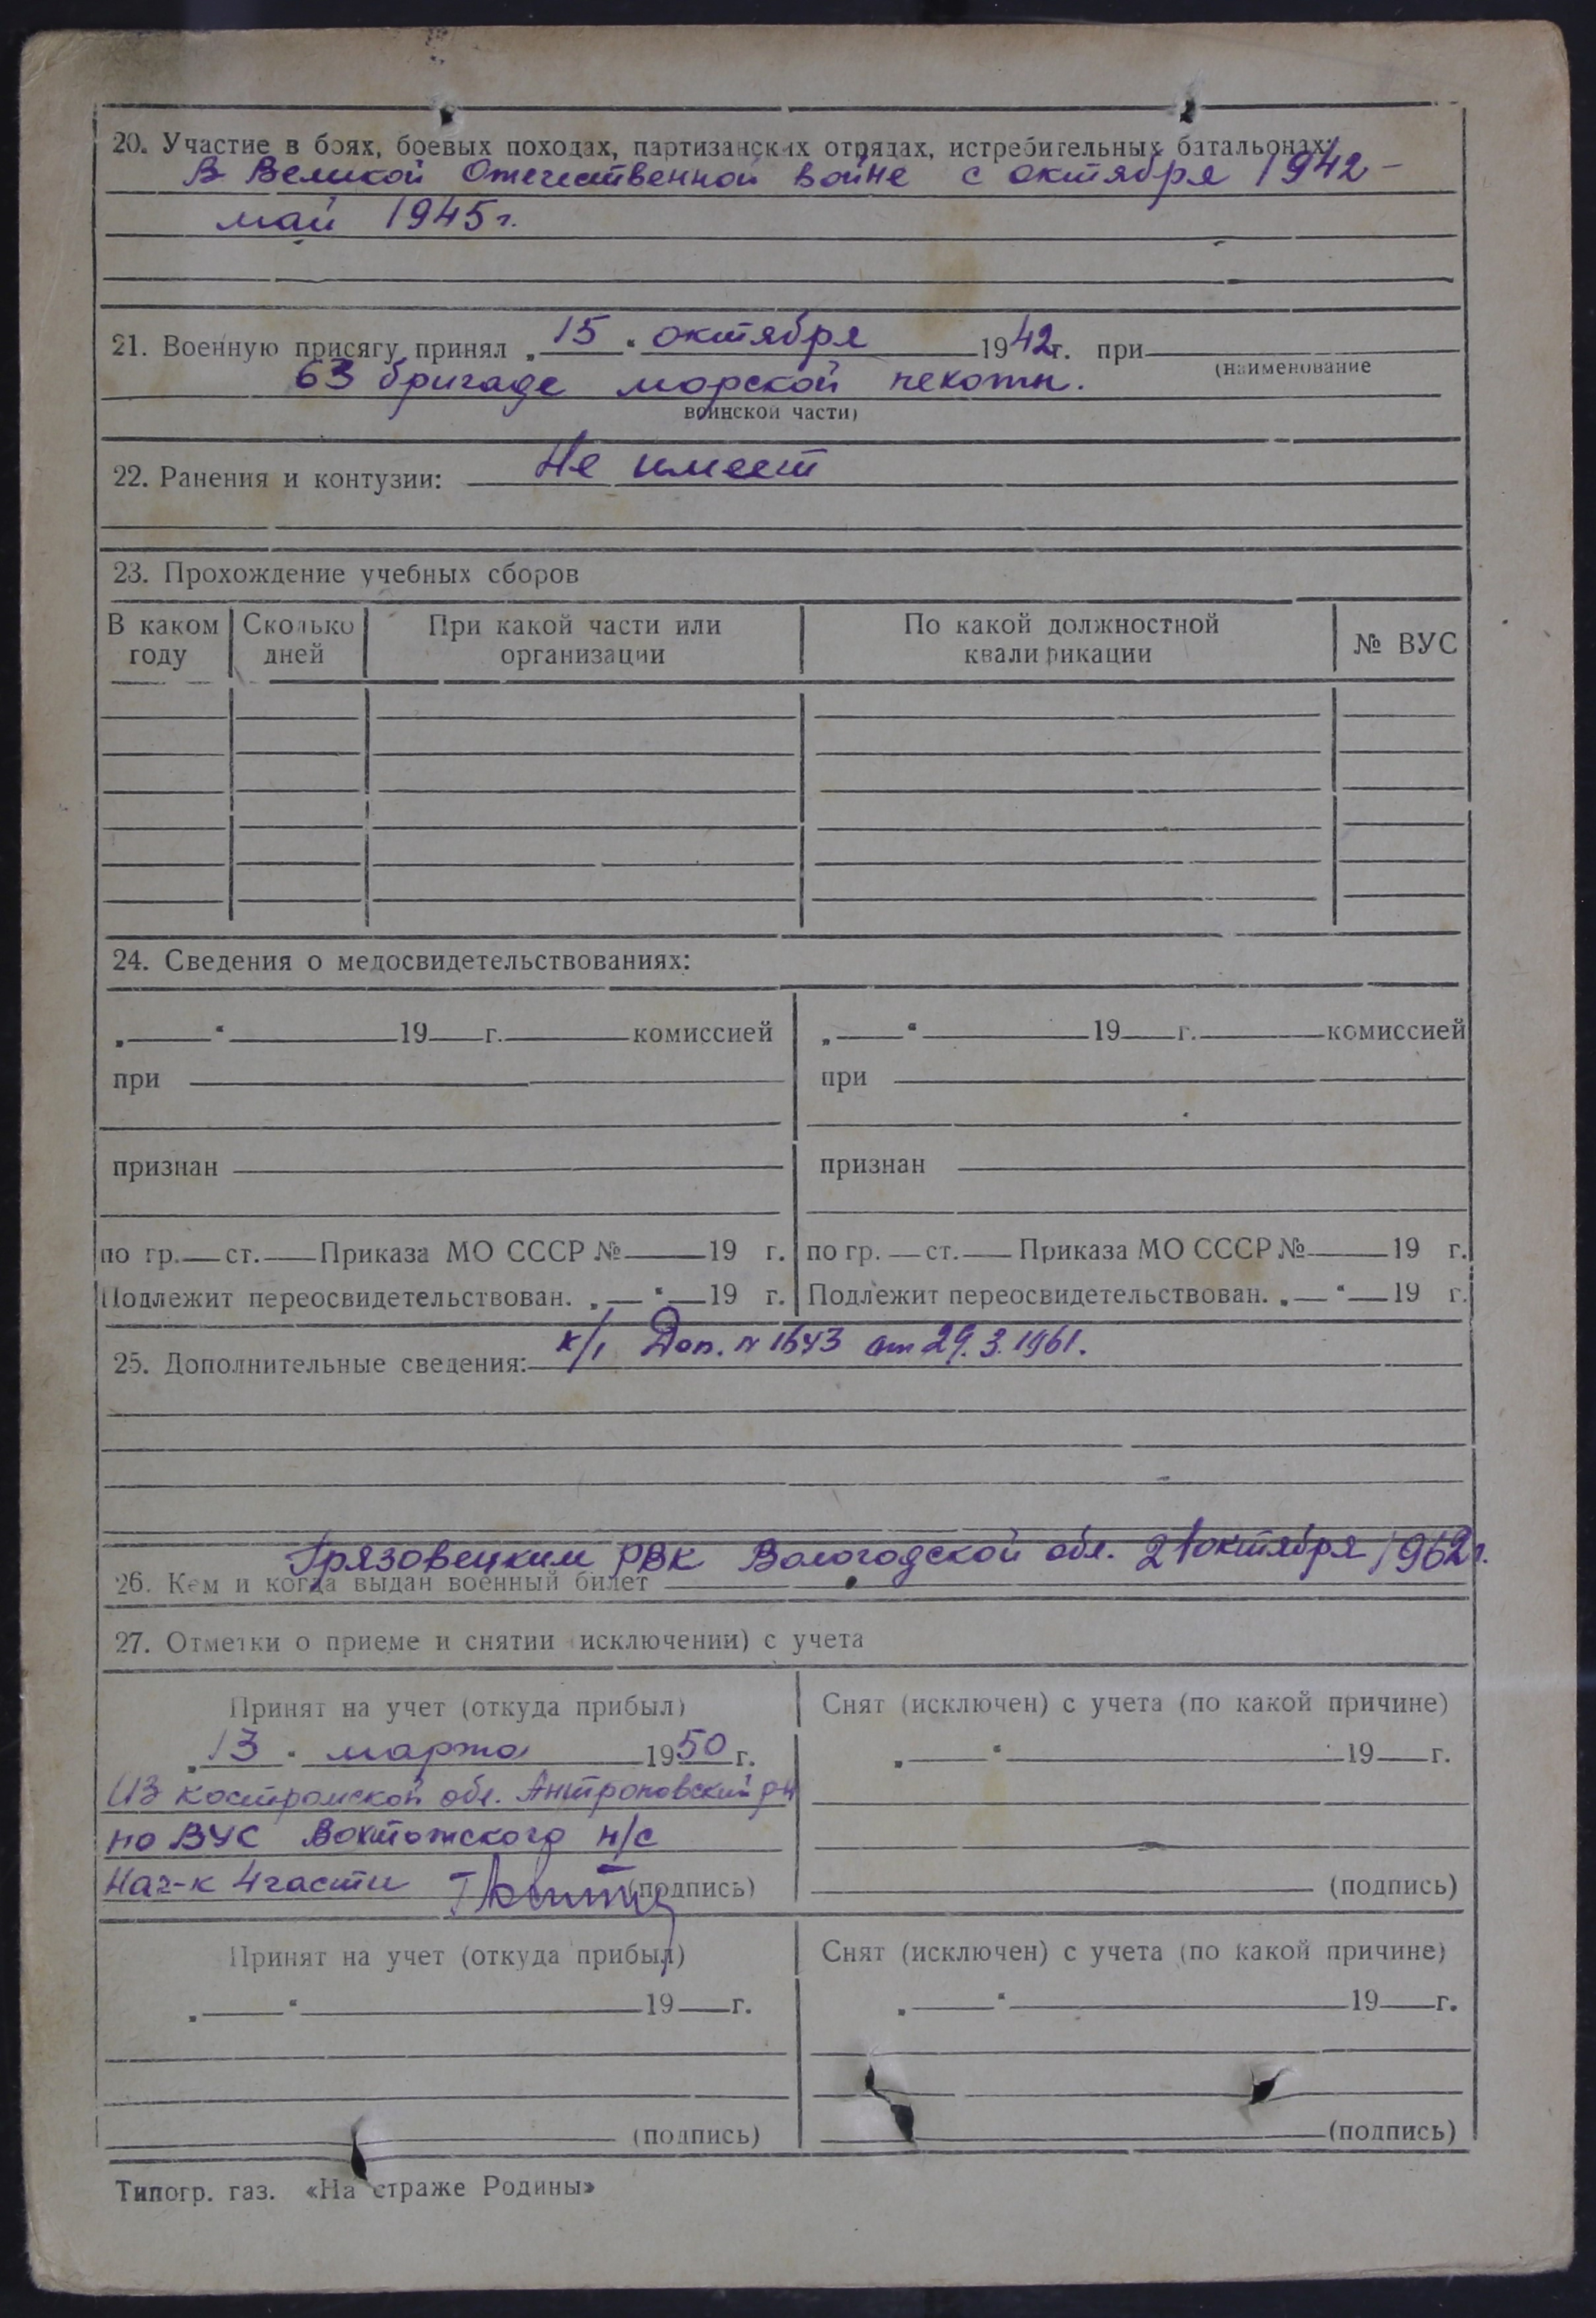 20. Участие в боях, боевых походах, партизанских отрядах, истребительных батальонах:
В Великой Отечественной войне с октября 1942 –
май 1945 г.
21. Военную присягу принял „ 15 “ октября 1942 г. при
(наименование
63 бригаде морской пехоты.
воинской части)
22. Ранения и контузии: Не имеет
23. Прохождение учебных сборов
В каком году Сколько дней При какой части или организации По какой должностной квалификации № ВУС
24. Сведения о медосвидетельствованиях:
„ “ 19 г. комиссией „ “ 19 г. комиссией
при при
признан признан
по гр. ст. Приказа МО СССР № 19 г. по гр. ст. Приказа МО СССР № 19 г.
Подлежит переосвидетельствован. „ “ 19 г. Подлежит переосвидетельствован. „ “ 19 г.
25. Дополнительные сведения: Доп. № 1643 от 29.3.1961.
Грязовецким РВК Вологодской обл. 21 октября 1962 г.
26. Кем и когда выдан военный билет
27. Отметки о приеме и снятии (исключении) с учета
Принят на учет (откуда прибыл) Снят (исключен) с учета (по какой причине)
„ 13 “ марта 1950 г. „ “ 19 г.
Из Костромской обл. Антроповский р-н
по ВУС Вохтожского п/с
Нач-к 4 части (подпись) (подпись)
Принят на учет (откуда прибыл) Снят (исключен) с учета (по какой причине)
„ “ 19 г. „ “ 19 г.
(подпись) (подпись)
Типогр. газ. «На страже Родины»